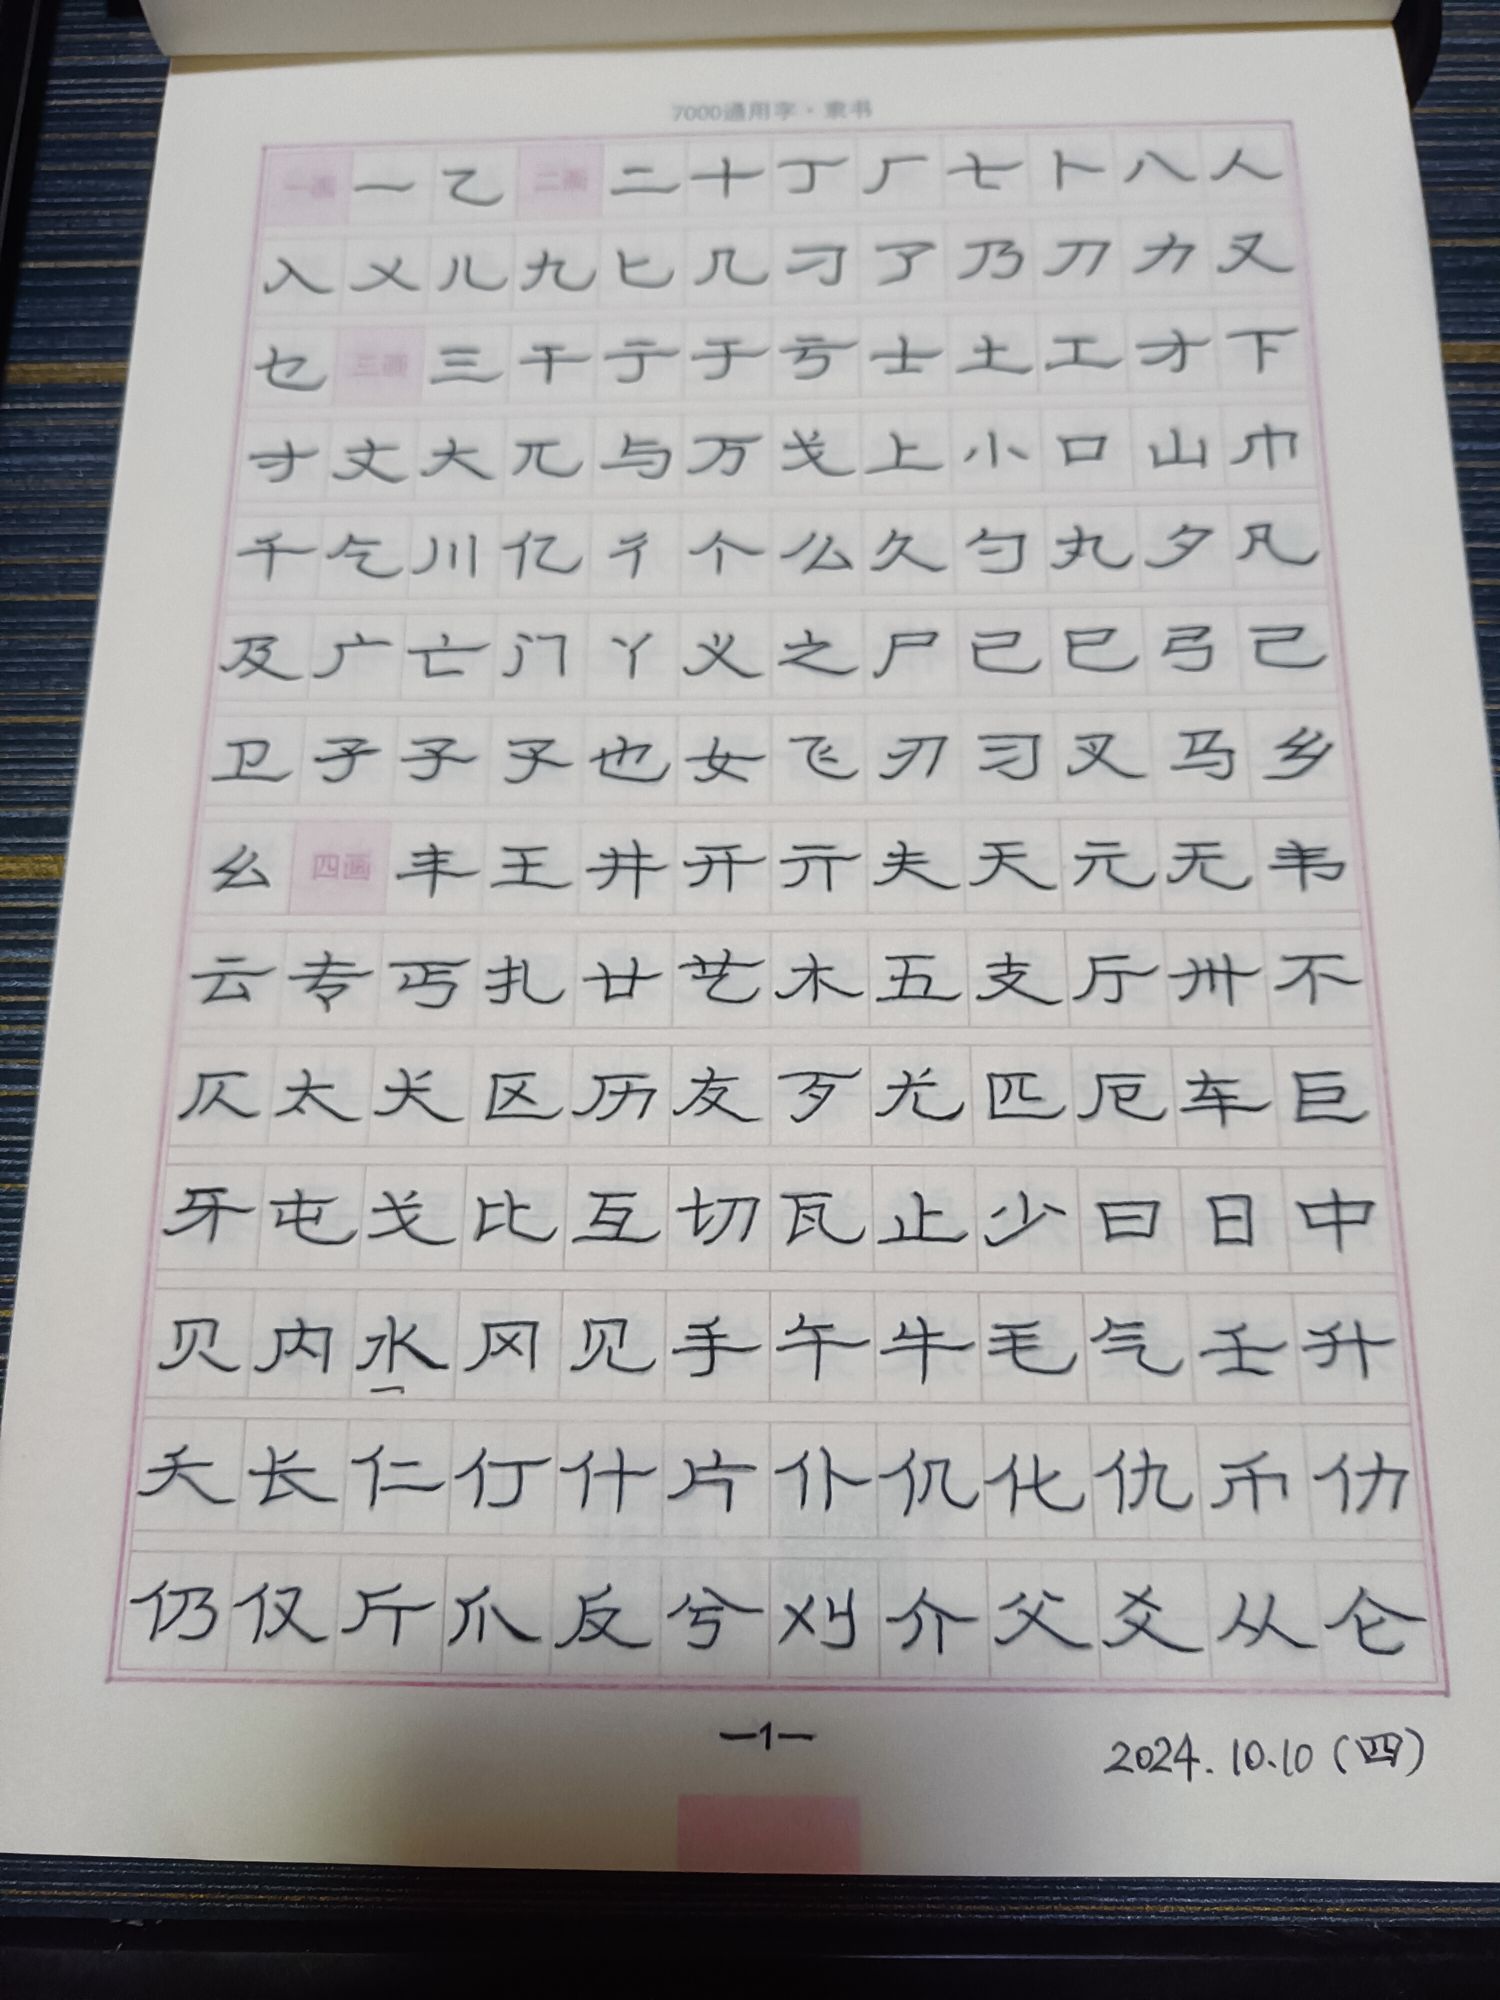 7000通用字·隶书
一画 一 乙 二画 二 十 丁 厂 七 卜 八 人
入 乂 儿 九 匕 几 刁 了 乃 刀 力 又
乜 三画 三 干 亍 于 亏 士 土 工 才 下
寸 丈 大 兀 与 万 弋 上 小 口 山 巾
千 乞 川 亿 彳 个 么 久 勺 丸 夕 凡
及 广 亡 门 丫 义 之 尸 己 巳 弓 己
卫 孑 子 孓 也 女 飞 刃 习 叉 马 乡
幺 四画 丰 王 井 开 亓 夫 天 元 无 韦
云 专 丐 扎 廿 艺 木 五 支 厅 卅 不
仄 太 犬 区 历 友 歹 尤 匹 厄 车 巨
牙 屯 戈 比 互 切 瓦 止 少 曰 日 中
贝 内 水 冈 见 手 午 牛 毛 气 壬 升
夭 长 仁 仃 什 片 仆 仉 化 仇 币 仂
仍 仅 斤 爪 反 兮 刈 介 父 爻 从 仑
—1—
2024.10.10(四)